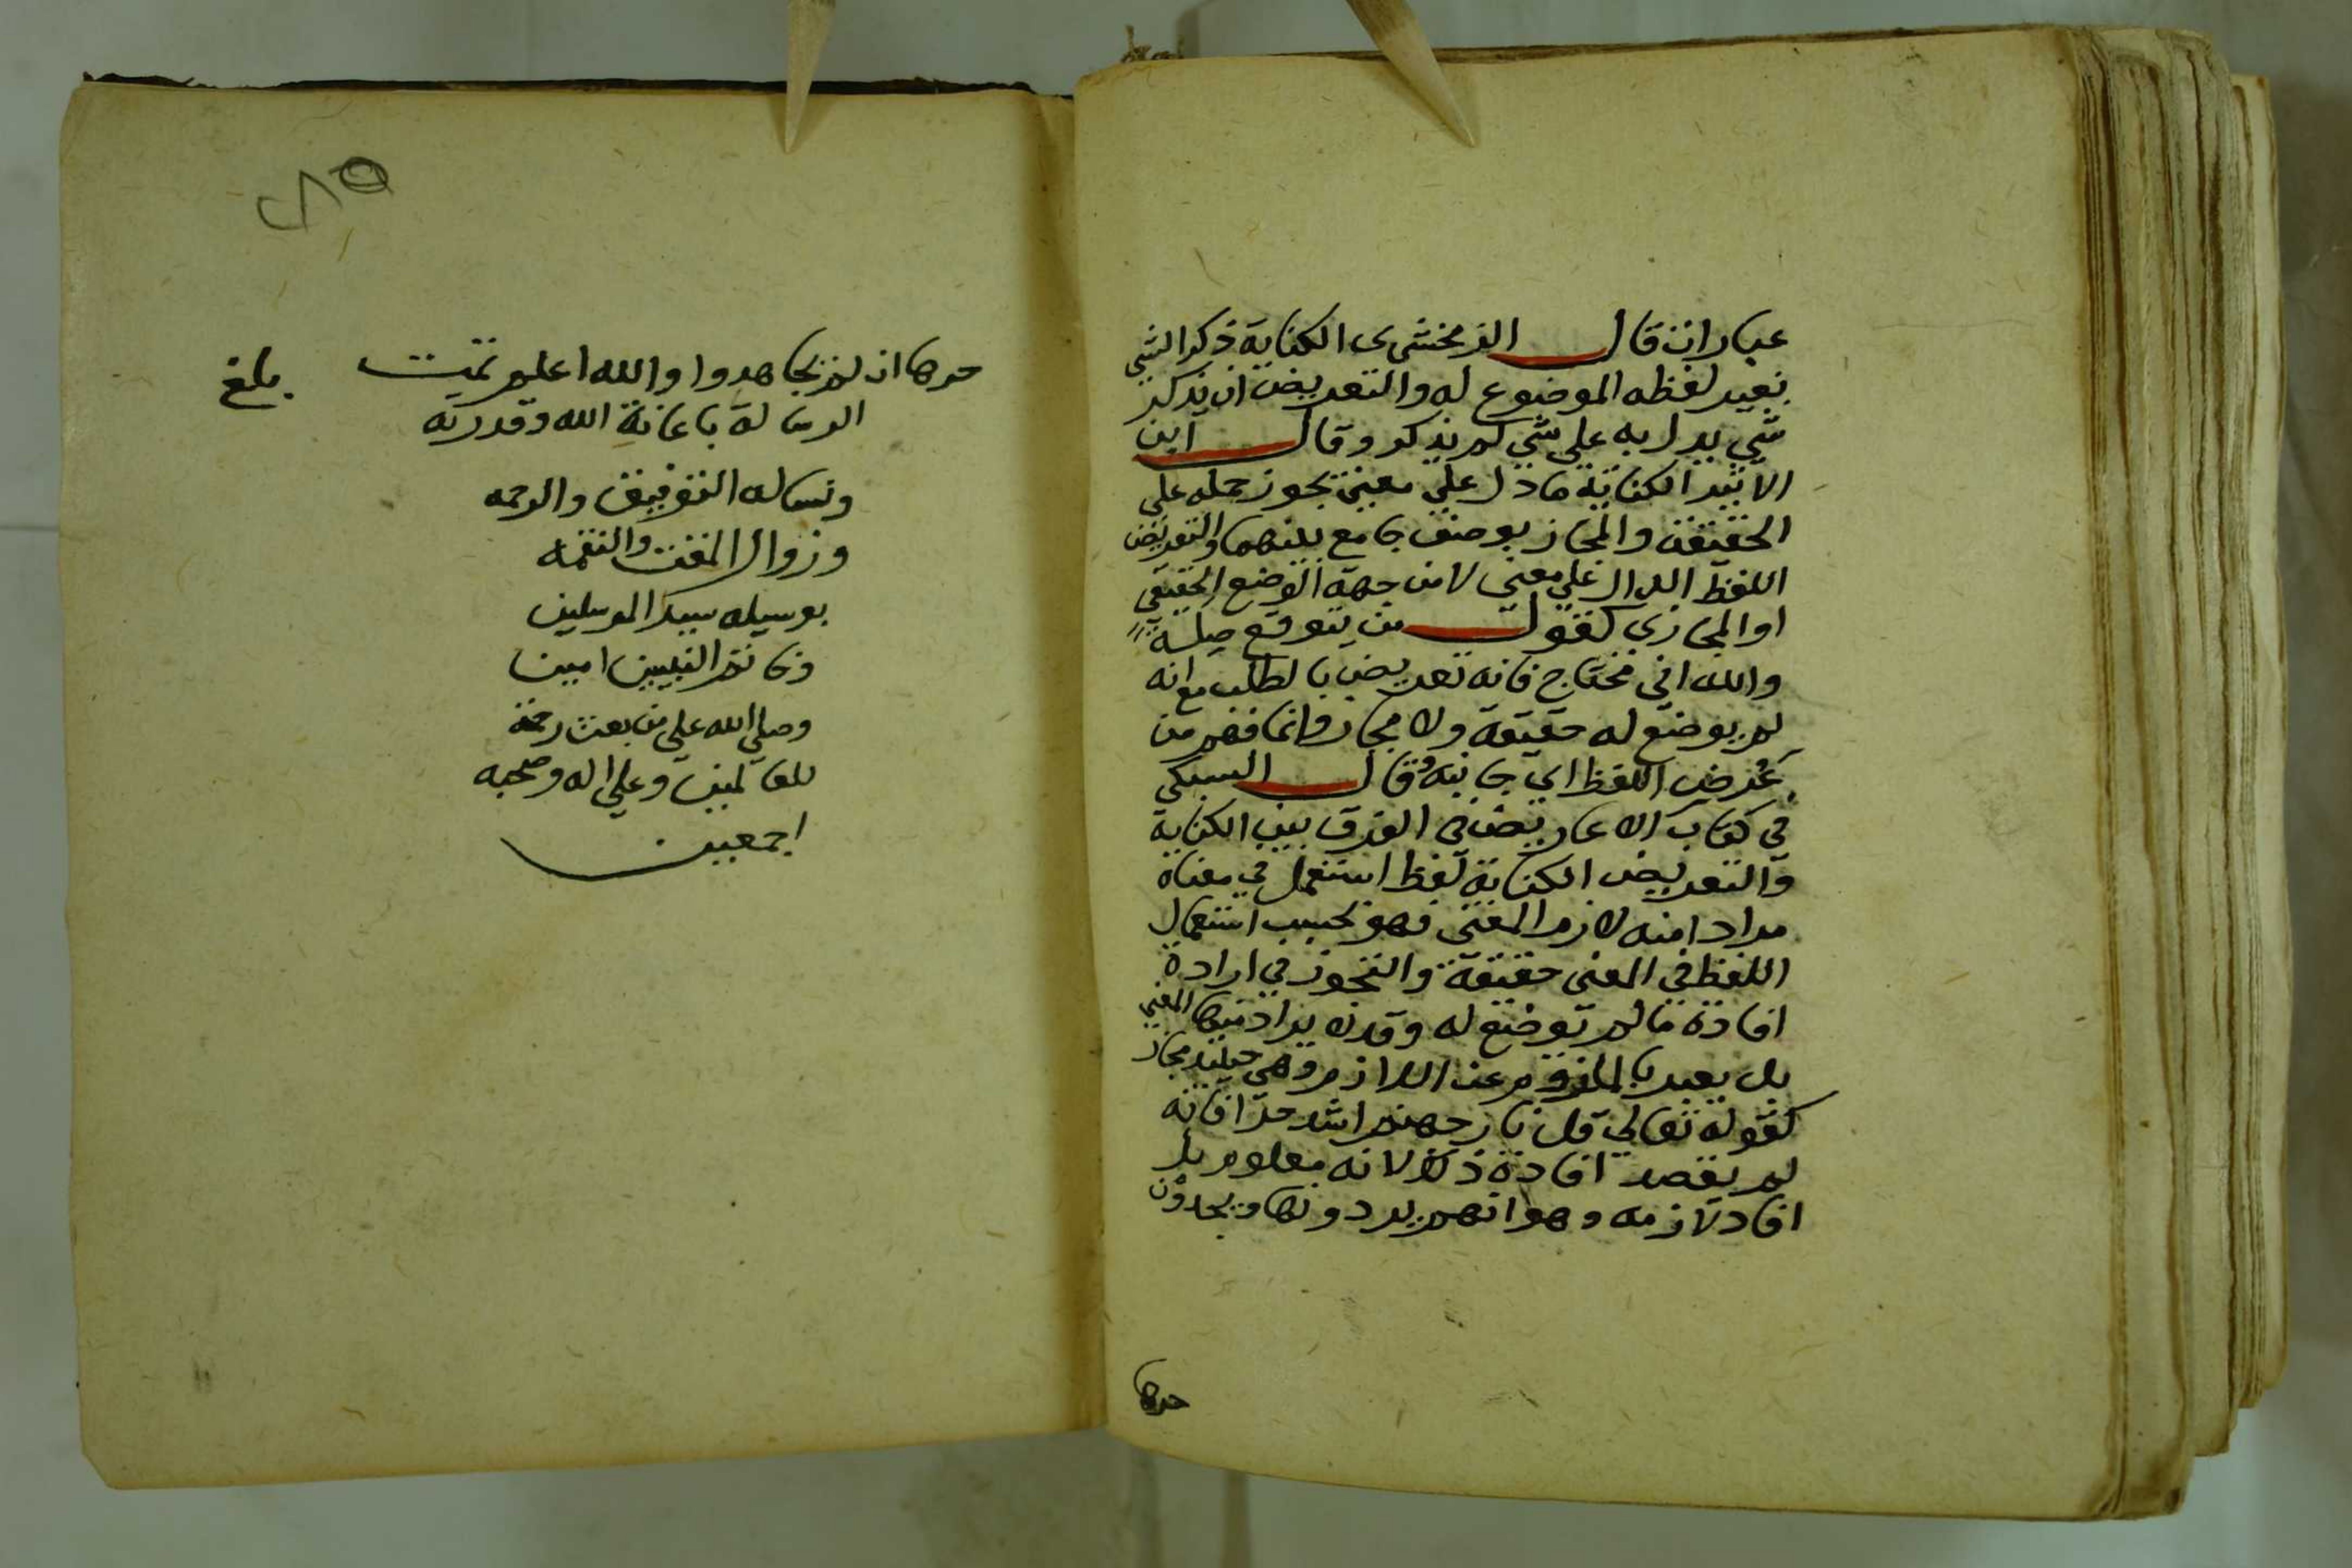 عبارات قال الزمخشرى الكناية ذكر الشي
بغير لفظه الموضوع له والتعريض ان يذكر
شي يدل به علي شي لم يذكر وقال ابن
الاثير الكناية ما دل علي معني يجوز حمله علي
الحقيقة والمجاز بوصف جامع بينهما والتعريض
اللفظ الدال علي معني لا من جهة الوضع الحقيقي
او المجازي كقول من يتوقع صلة
والله اني محتاج فانه تعريض بالطلب مع انه
لم يوضع له حقيقة ولا مجاز وانما فهم من
عُرض اللفظ اي جانبه وقال السبكي
في كتاب الاعاريض في الفرق بين الكناية
والتعريض الكناية لفظ استعمل في معناه
مرادا منه لازم المعنى فهو بحسب استعمال
اللفظ في المعنى حقيقة والتجوز في ارادة
افادة ما لم توضع له وقد لا يراد منها المعني
بل يعبر بالملزوم عن اللازم وهي حينيذ مجاز
كقوله تعالي قل نار جهنم اشد حرا فانه
لم يقصد افادة ذلك لانه معلوم بل
افاد لازمه وهو انهم يردونها ويجدون
حرها
٨٥
حرها ان لم يجاهدوا والله اعلم تمت
بلغ
الرسالة باعانة الله وقدرته
ونساله التوفيق والرحمه
وزوال المقت والنقمه
بوسيله سيد المرسلين
وخاتم النبيين امين
وصلي الله علي من بعث رحمة
للعالمين وعلي اله وصحبه
اجمعين